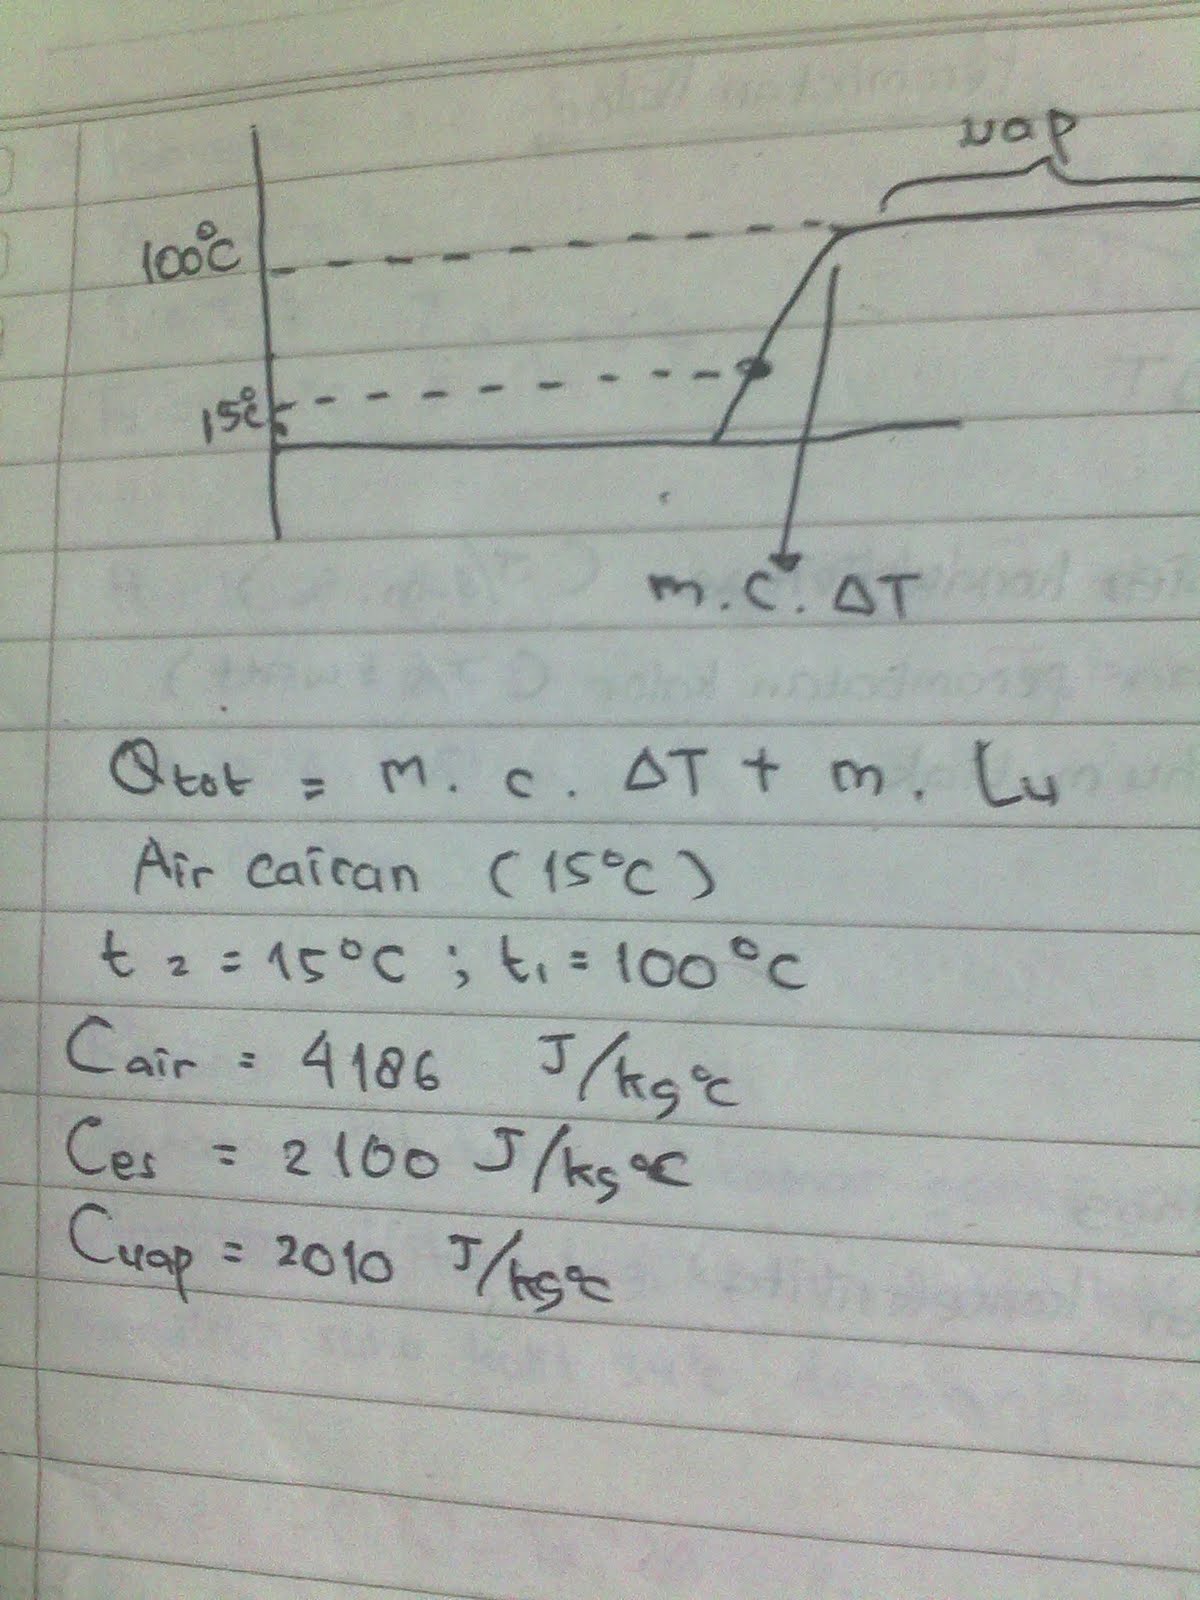 uap
100°C
15°C
m. c. ΔT
Qtot = m. c. ΔT + m. Lu
Air cairan (15°C)
t2 = 15°C ; t1 = 100°C
Cair = 4186 J/kg°C
Ces = 2100 J/kg°C
Cuap = 2010 J/kg°C